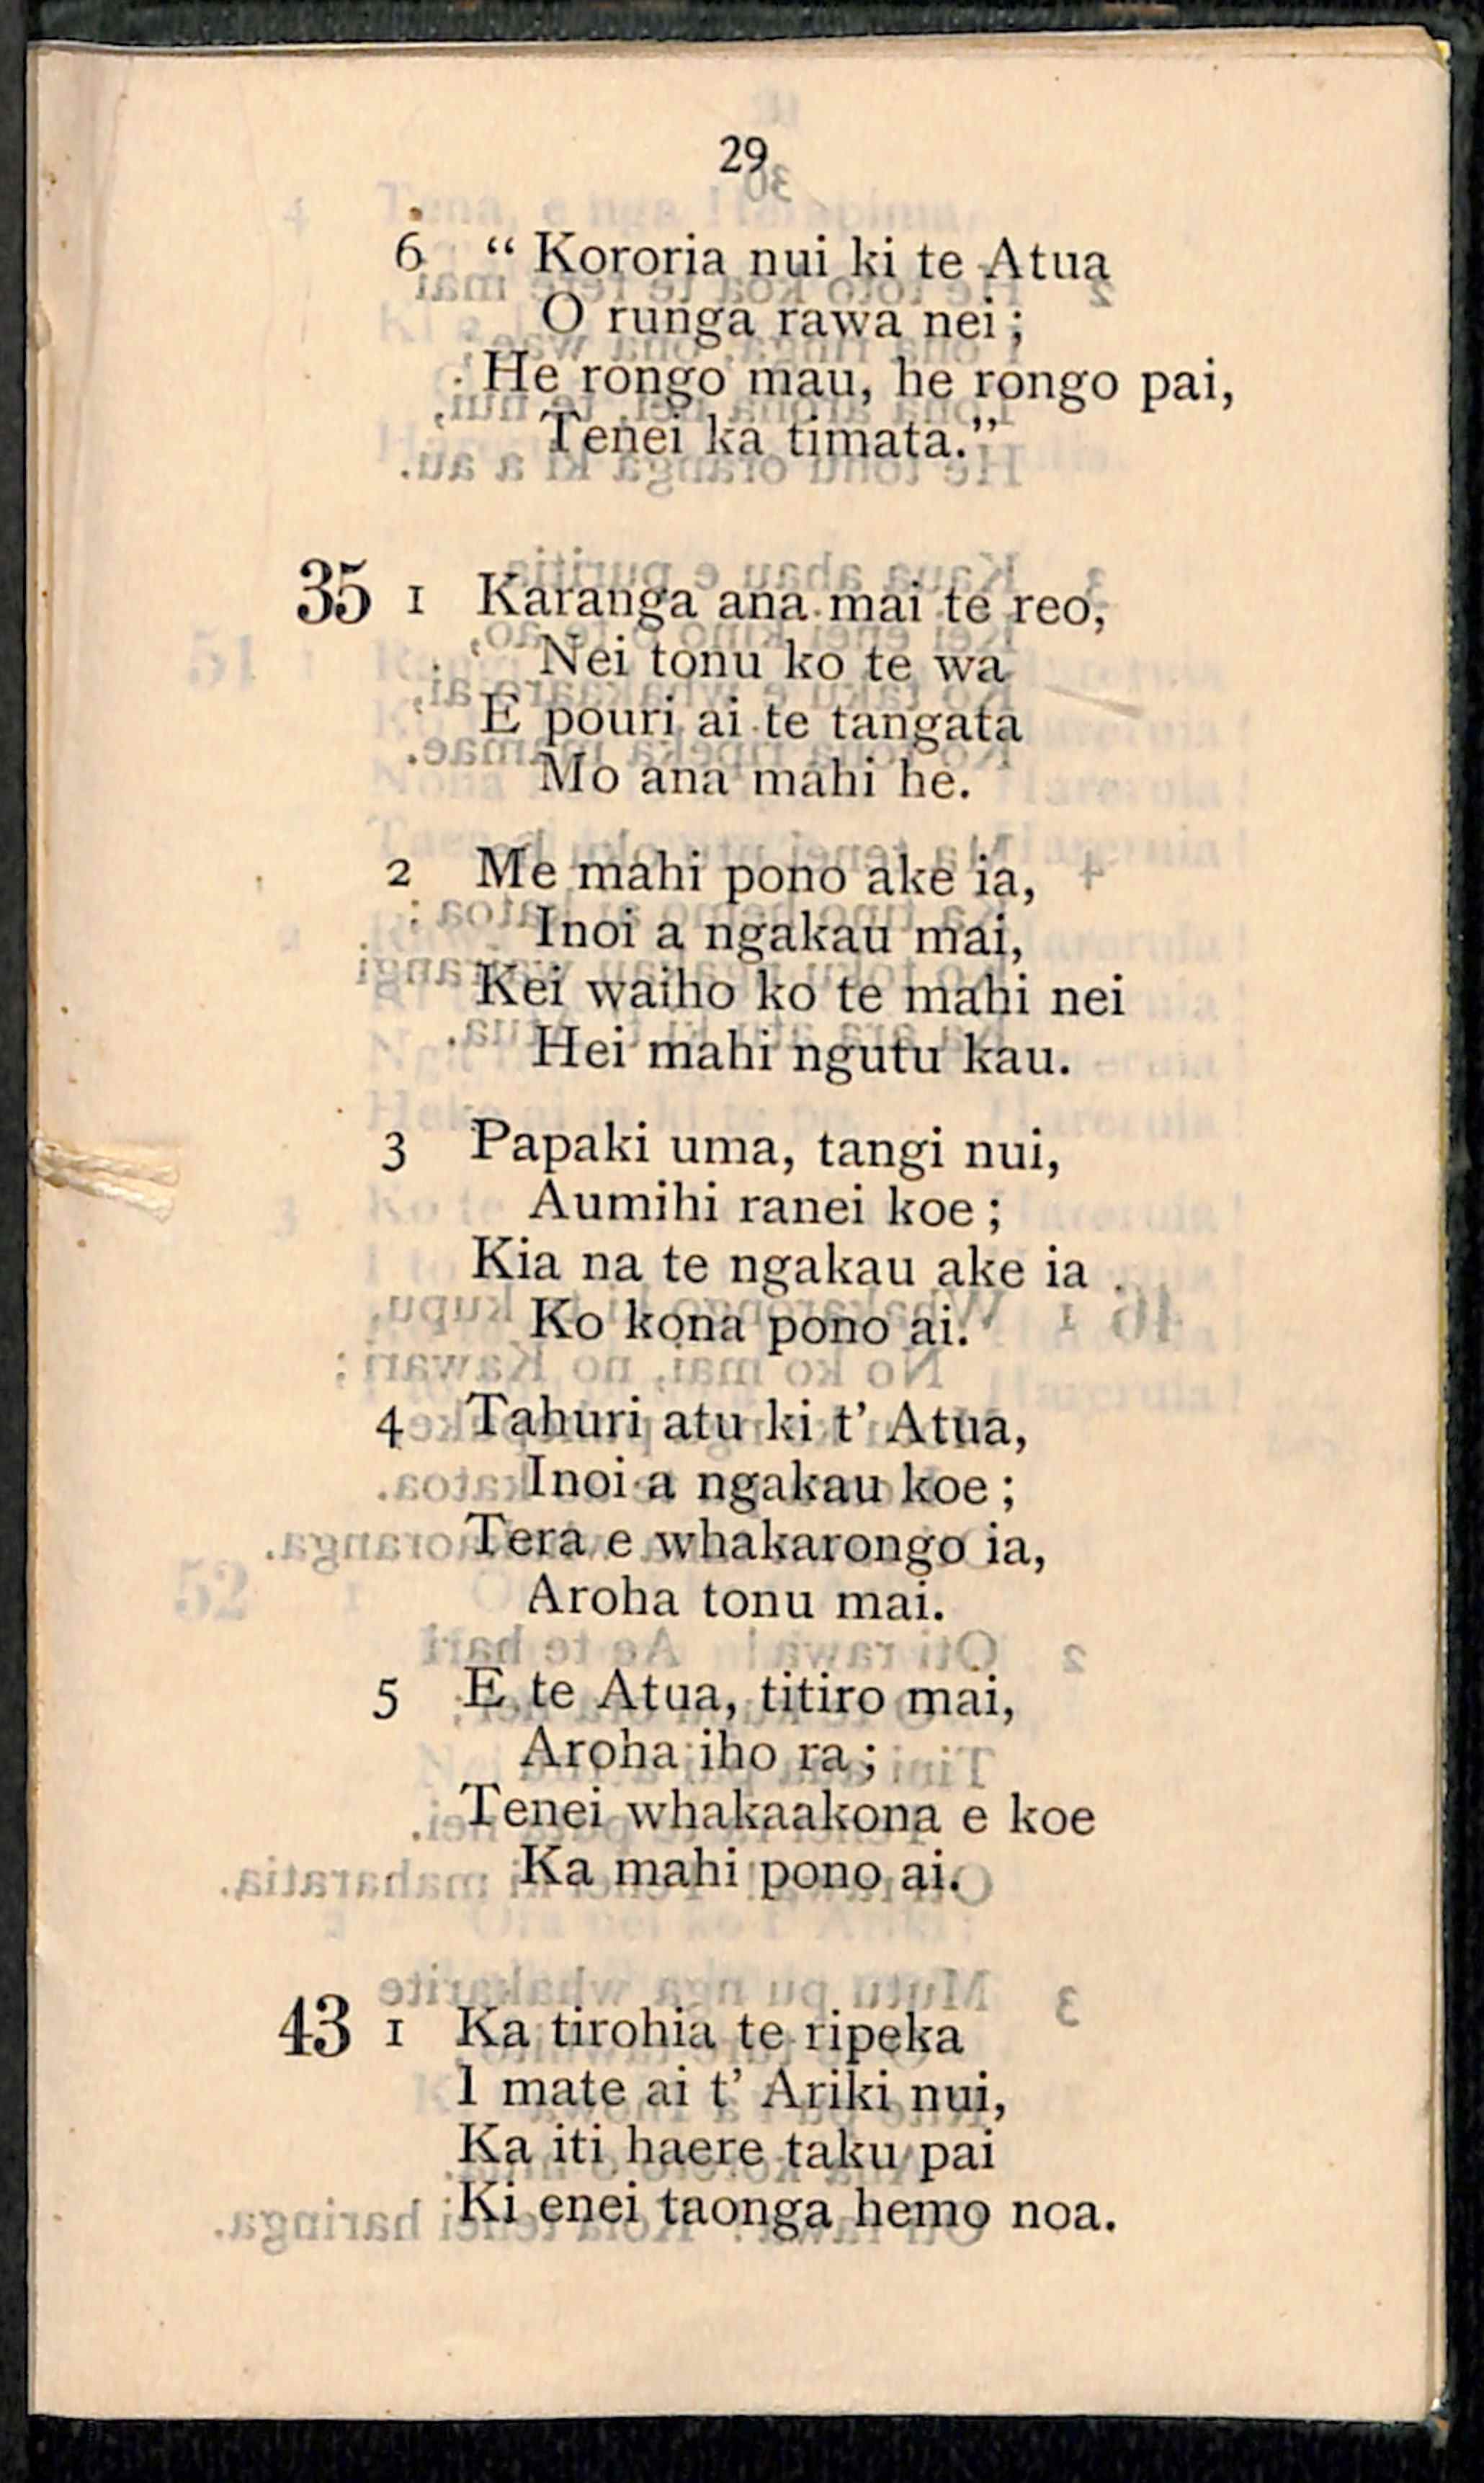 29
6 “ Kororia nui ki te Atua
O runga rawa nei ;
He rongo mau, he rongo pai,
Tenei ka timata.”
35 1 Karanga ana mai te reo,
Nei tonu ko te wa
E pouri ai te tangata
Mo ana mahi he.
2 Me mahi pono ake ia,
Inoi a ngakau mai,
Kei waiho ko te mahi nei
Hei mahi ngutu kau.
3 Papaki uma, tangi nui,
Aumihi ranei koe ;
Kia na te ngakau ake ia
Ko kona pono ai.
4 Tahuri atu ki t’ Atua,
Inoi a ngakau koe ;
Tera e whakarongo ia,
Aroha tonu mai.
5 E te Atua, titiro mai,
Aroha iho ra ;
Tenei whakaakona e koe
Ka mahi pono ai.
43 1 Ka tirohia te ripeka
I mate ai t’ Ariki nui,
Ka iti haere taku pai
Ki enei taonga hemo noa.